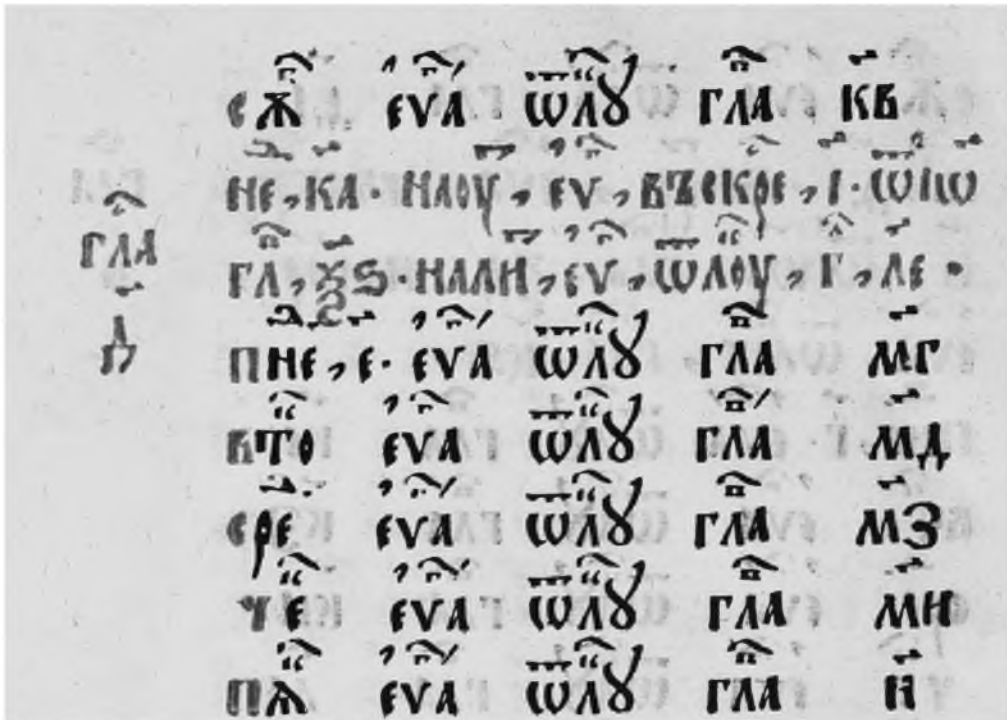 сѫ҃ еѵⷢ҇а ѿлꙋⷦ҇ глаⷡ҇ к҃в
неⷣ, к҃а · наоуⷮ, еѵⷢ҇, въскрⷭ҇е, і҃ · ѿіѡ҃
глⷡ҇а, ѯ҃ѕ · налиⷮ, еѵⷢ҇, ѿлоуⷦ҇, г҃, ле ·
гла
д҃
пнеⷣ, е҃ · еѵⷢ҇а ѿлꙋⷦ҇ глаⷡ҇ м҃г
втоⷬ҇ еѵⷢ҇а ѿлꙋⷦ҇ глаⷡ҇ м҃д
среⷣ еѵⷢ҇а ѿлꙋⷦ҇ глаⷡ҇ м҃з
чеⷦ҇ еѵⷢ҇а ѿлꙋⷦ҇ глаⷡ҇ м҃и
пѧⷦ҇ еѵⷢ҇а ѿлꙋⷦ҇ глаⷡ҇ н҃